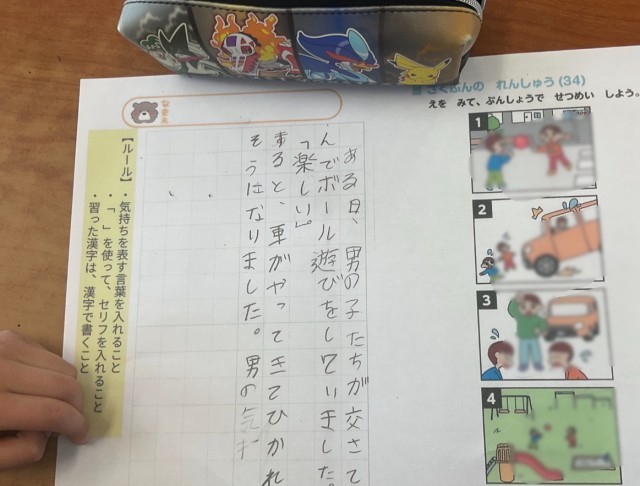 さくぶんの れんしゅう(34)
えを みて、ぶんしょうで せつめい しよう。
1
2
3
4
ある日、男の子たちが交さて
んでボール遊びをしていました。
「楽しい」
すると、車がやってきてひかれ
そうになりました。男の気持
【ルール】
・気持ちを表す言葉を入れること
・「 」を使って、セリフを入れること
・習った漢字は、漢字で書くこと